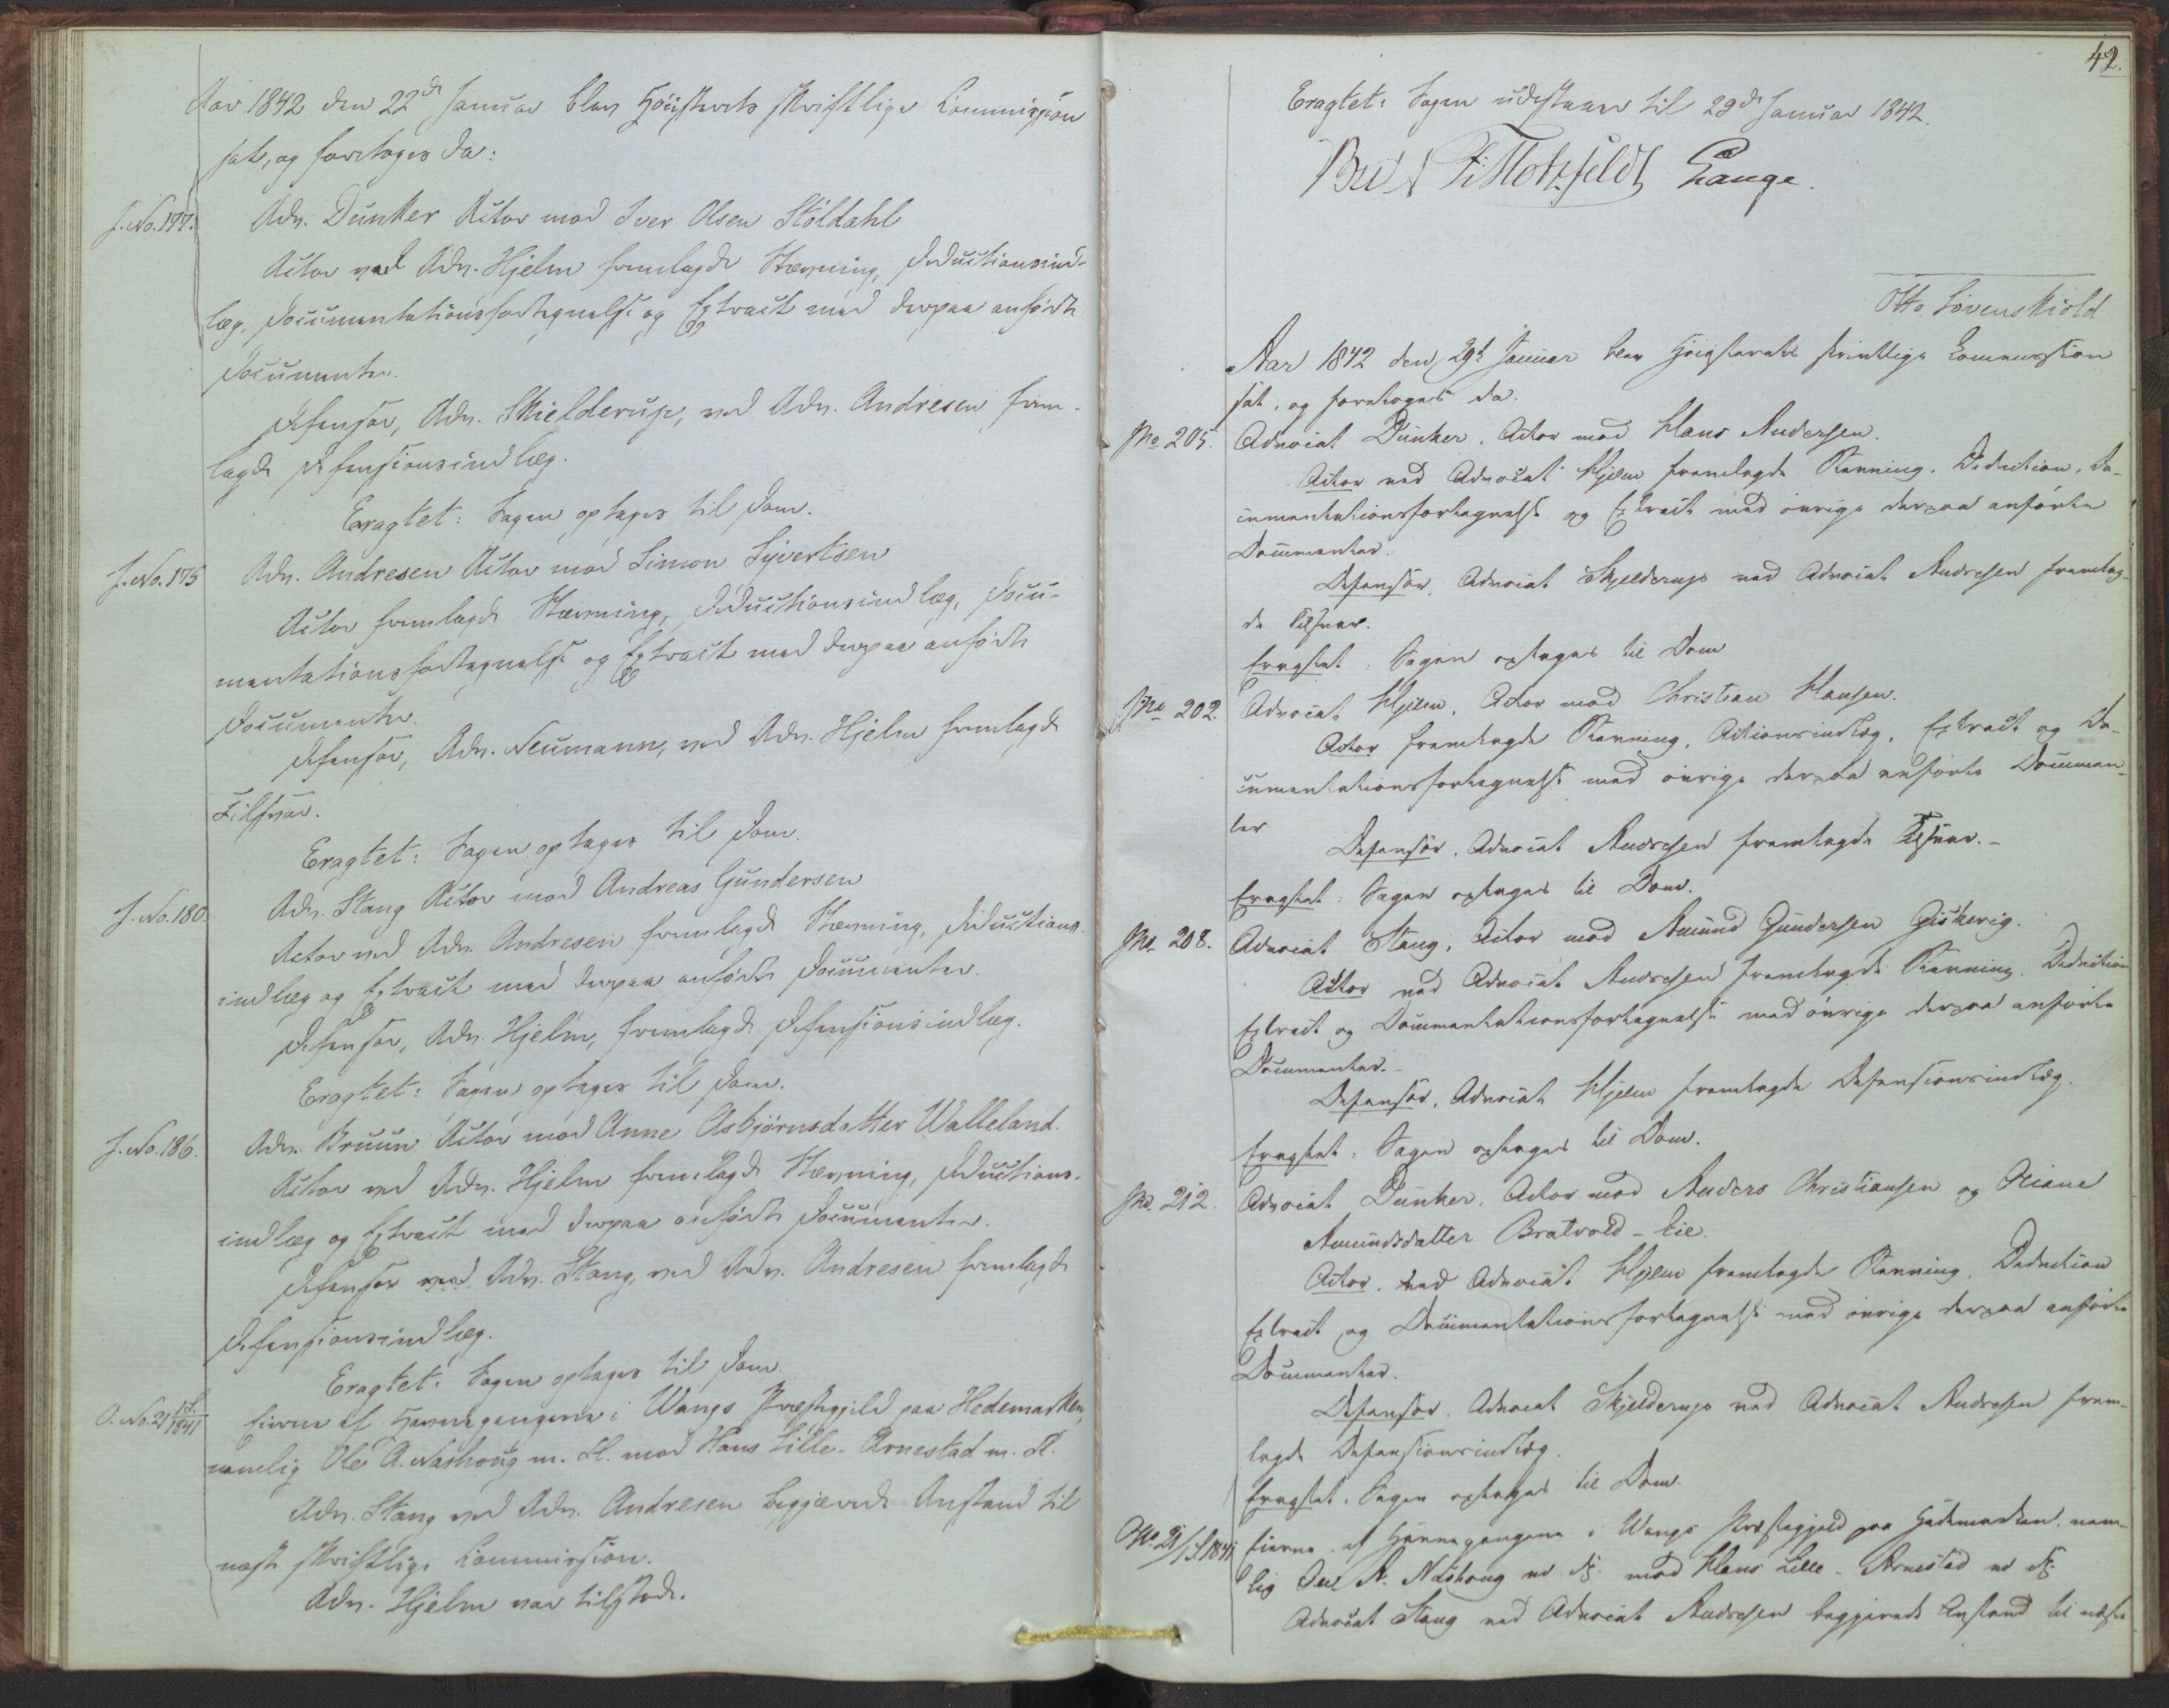 Aar 1842 den 22de Januar blev Høiesterets skriftlige Commission
sat, og foretoges da:
J. No. 177. Adv. Dunker Actor mod Iver Olsen Stöldahl
Actor ved Adv. Hjelm fremlagde Stævning, Deductionsind-
læg, Documentationsfortegnelse og Extract med derpaa anførte
Documenter.
Defensor, Adv. Skielderup, ved Adv. Andresen frem-
lagde Defensionsindlæg.
Eragtet: Sagen optages til Dom.
J. No. 175 Adv. Andresen Actor mod Simon Syvertsen
Actor fremlagde Stævning, Deductionsindlæg, Docu-
mentationsfortegnelse og Extract med derpaa anførte
Documenter.
Defensor, Adv. Neumann, ved Adv. Hjelm fremlagde
Tilsvar.
Eragtet: Sagen optages til Dom.
J. No. 180. Adv. Stang Actor mod Andreas Gundersen
Actor ved Adv. Andresen fremlagde Stævning, Deductions-
indlæg og Extract med derpaa anførte Documenter.
Defensor, Adv. Hjelm, fremlagde Defensionsindlæg.
Eragtet: Sagen optages til Dom.
J. No. 186. Adv. Bruun Actor mod Anne Asbjörnsdatter Walleland.
Actor ved Adv. Hjelm fremlagde Stævning, Deductions-
indlæg og Extract med derpaa anførte Documenter.
Defensor ved Adv. Stang, ved Adv. Andresen fremlagde
Defensionsindlæg.
Eragtet: Sagen optages til Dom.
O. No. 21 1841 Eierne af Havnegangene i Wangs Præstegjeld paa Hedemarken,
nemlig Ole A. Nashoug m. Fl. mod Hans Lille-Arnestad m. Fl.
Adv. Stang ved Adv. Andresen begjærede Anstand til
næste skriftlige Commission.
Adv. Hjelm var tilstede.
42.
Eragtet: Sagen udstaaer til 29de Januar 1842.
F: Motzfeldt Lange.
Otto Løvenskiold
Aar 1842 den 29d Januar blev Høiesterets skriftlige Commission
sat, og foretoges da.
No 205. Advocat Dunker, Actor mod Hans Andersen.
Actor ved Advocat Hjelm fremlagde Stævning, Deduction, Do-
cumentationsfortegnelse og Extract med øvrige derpaa anførte
Documenter.
Defensor, Advocat Skjelderup ved Advocat Andresen fremlag-
de Tilsvar.
Eragtet: Sagen optages til Dom
No 202. Advocat Hjelm, Actor mod Christian Hansen.
Actor fremlagde Stævning, Actionsindlæg, Extract og Do-
cumentationsfortegnelse med øvrige derpaa anførte Documen-
ter
Defensor, Advocat Andresen fremlagde Tilsvar.-
Eragtet: Sagen optages til Dom.
No 208. Advocat Stang, Actor mod Amund Gundersen Giskerig.
Actor ved Advocat Andresen fremlagde Stævning, Deduction
Extract og Documentationsfortegnelse med øvrige derpaa anførte
Documenter.-
Defensor, Advocat Hjelm fremlagde Defensionsindlæg.
Eragtet: Sagen optages til Dom.
No. 212. Advocat Dunker, Actor mod Anders Christiansen og
Amundsdatter Bratvold-Eie.
Actor, ved Advocat Hjelm fremlagde Stævning, Deduction
Extract og Documentationsfortegnelse med øvrige derpaa anførte
Documenter.
Defensor, Advocat Skjelderup ved Advocat Andresen frem-
lagde Defensionsindlæg.
Eragtet: Sagen optages til Dom.
O No 21 1841 Eierne af Havnegangene i Wangs Præstegjeld paa Hedemarken, nem-
lig Ole A. Nashoug m Fl: mod Hans Lille-Arnestad m Fl:
Advocat Stang ved Advocat Andresen begjærede Anstand til næste